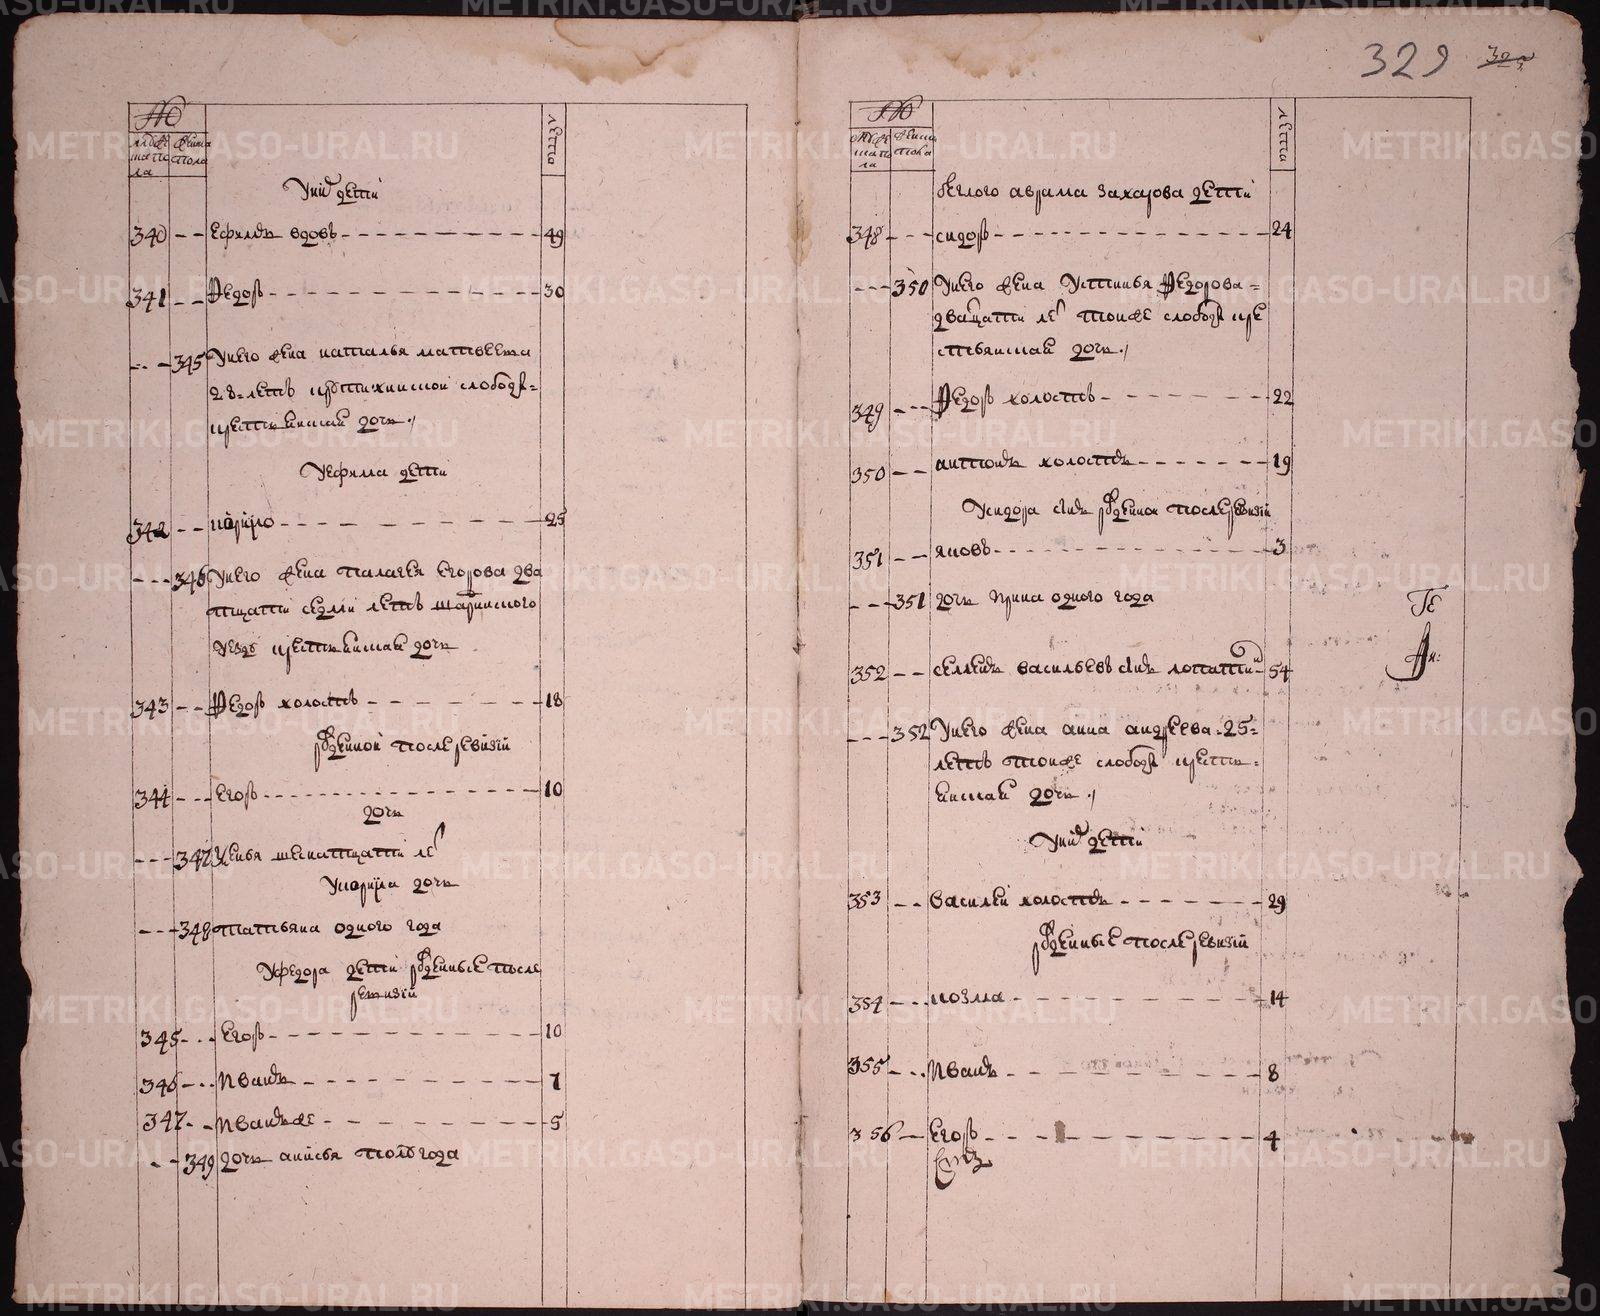 №
мужеска пола
женска пола
лета
Унихъ дети
340 ефимъ вдовъ 49
341 Федоръ 30
345 Унего жена наталья матвеева
28 летъ
крестьянская дочь
Уефима дети
342 25
346 Унего жена палагея егорова два
тцати седми летъ шадринского
уезду крестьянская дочь
343 Федоръ холостъ 18
рожденной после ревизии
344 егоръ 10
дочь
347 шеснатцати летъ
дочь
348 татьяна одного года
Уфедора дети рожденные после
ревизии
345 егоръ 10
346 Иванъ 7
347 Иванъ же 5
349 дочь анисья полугода
329
№
мужеска пола
женска пола
лета
беглого аврама захарова дети
348 сидоръ 24
350 Унего жена Устинья Федорова
дватцати летъ тоиже слободы кре
стьянская дочь
349 Федоръ холостъ 22
350 антонъ холостъ 19
Усидора сынъ рожденной после ревизии
351 яковъ 3
351 дочь Ирина одного года
352 семенъ васильевъ сынъ лопатинъ 54
352 Унего жена анна андреева 25
летъ тоиже слободы крестья
нская дочь
Унихъ дети
353 василей холостъ 29
рожденные после ревизии
354 козма 14
355 Иванъ 8
356 егоръ 4
Ге
METRIKI.GASO-URAL.RU